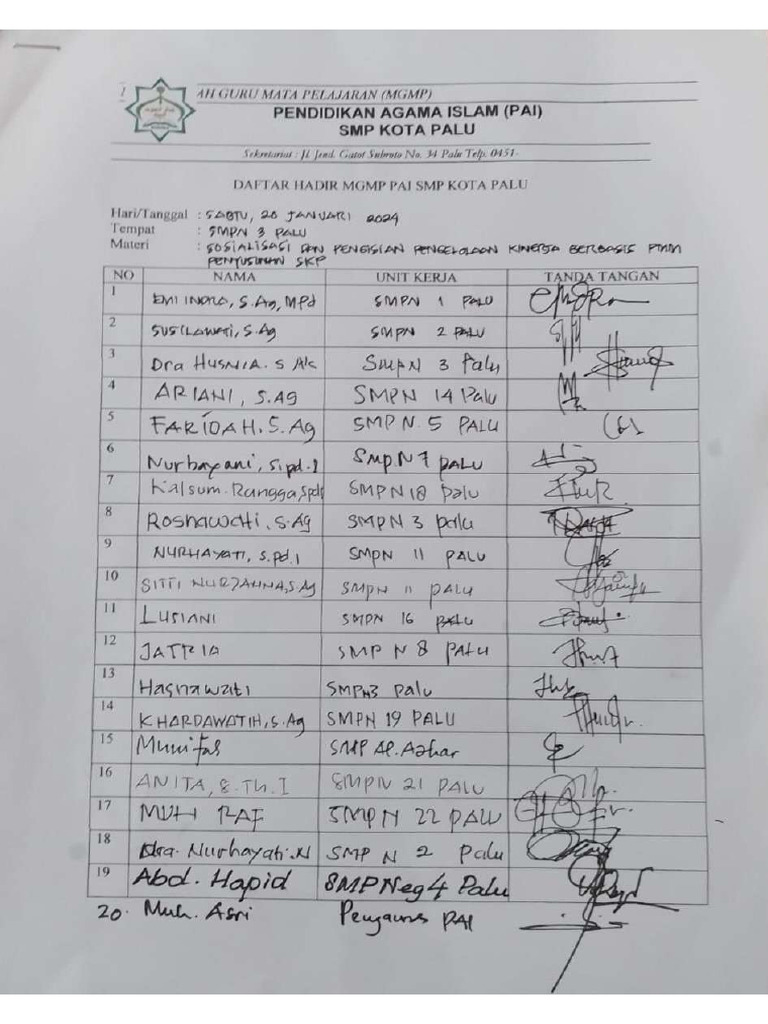 AH GURU MATA PELAJARAN (MGMP)
PENDIDIKAN AGAMA ISLAM (PAI)
SMP KOTA PALU
Sekretariat : Jl. Jend. Gatot Subroto No. 34 Palu Telp. 0451-
DAFTAR HADIR MGMP PAI SMP KOTA PALU
Hari/Tanggal : SABTU, 20 JANUARI 2024
Tempat : SMPN 3 PALU
Materi : SOSIALISASI DAN PENGISIAN PENGELOLAAN KINERJA BERBASIS PMM
PENYUSUNAN SKP
NO NAMA UNIT KERJA TANDA TANGAN
1 EMI INDRA, S.Ag, MPd SMPN 1 PALU
2 SUSILAWATI, S.Ag SMPN 2 PALU
3 Dra HUSNIA. S SMPN 3 Palu
4 ARIANI, S.Ag SMPN 14 Palu
5 FARIDAH, S.Ag SMPN 5 PALU
6 Nurbayani, S.pd.I SmpN 7 PALU
7 Kalsum. Rangga, SMPN 18 palu
8 Rosnawati, S.Ag SMPN 3 palu
9 NURHAYATI, S.Pd.I SMPN 11 PALU
10 SITTI NURJANNA, S.Ag SMPN 11 PALU
11 LUSIANI SMPN 16 PALU
12 JATRIA SMP N 8 PALU
13 Hasnawati SMPN3 Palu
14 KHARDAWATIH, S.Ag SMPN 19 PALU
15 SMP Al. Azhar
16 ANITA, S.Th.I SMPN 21 PALU
17 MUH RAF SMPN 22 PALU
18 Dra. Nurhayati.N SMP N 2 Palu
19 Abd. Hapid SMPNeg 4 Palu
20. Muh. Asri Pengawas PAI